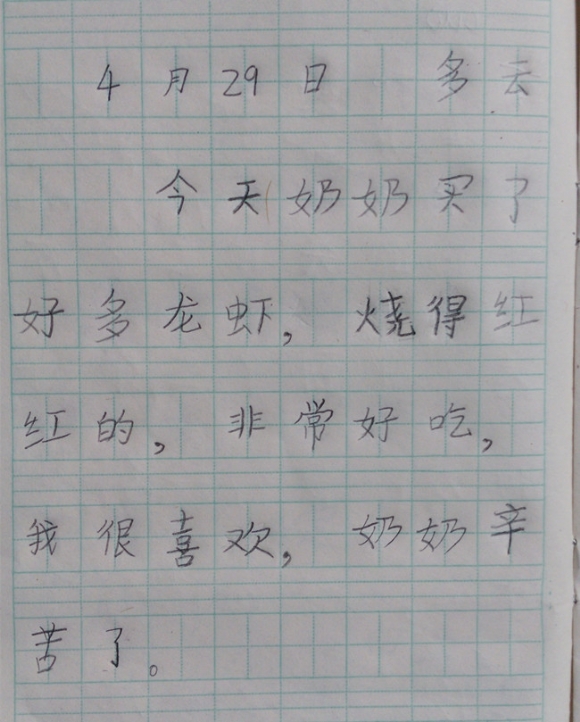 4月29日 多云
今天奶奶买了
好多龙虾，烧得红
红的，非常好吃，
我很喜欢，奶奶辛
苦了。